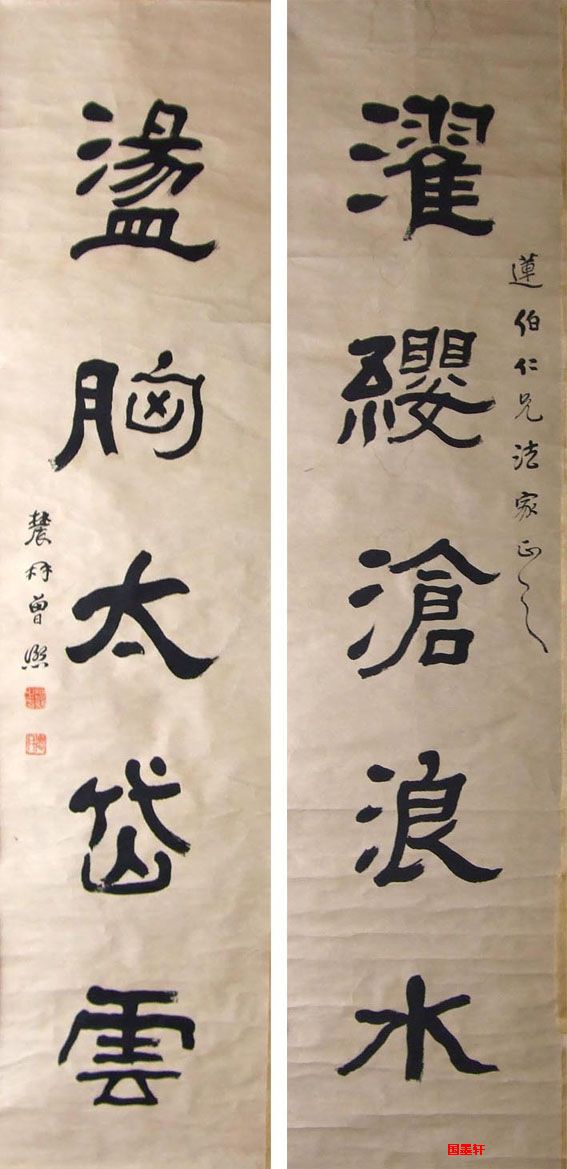 蓮伯仁兄法家正之
濯纓滄浪水
盪胸太岱雲
農髯曾熙
国墨轩